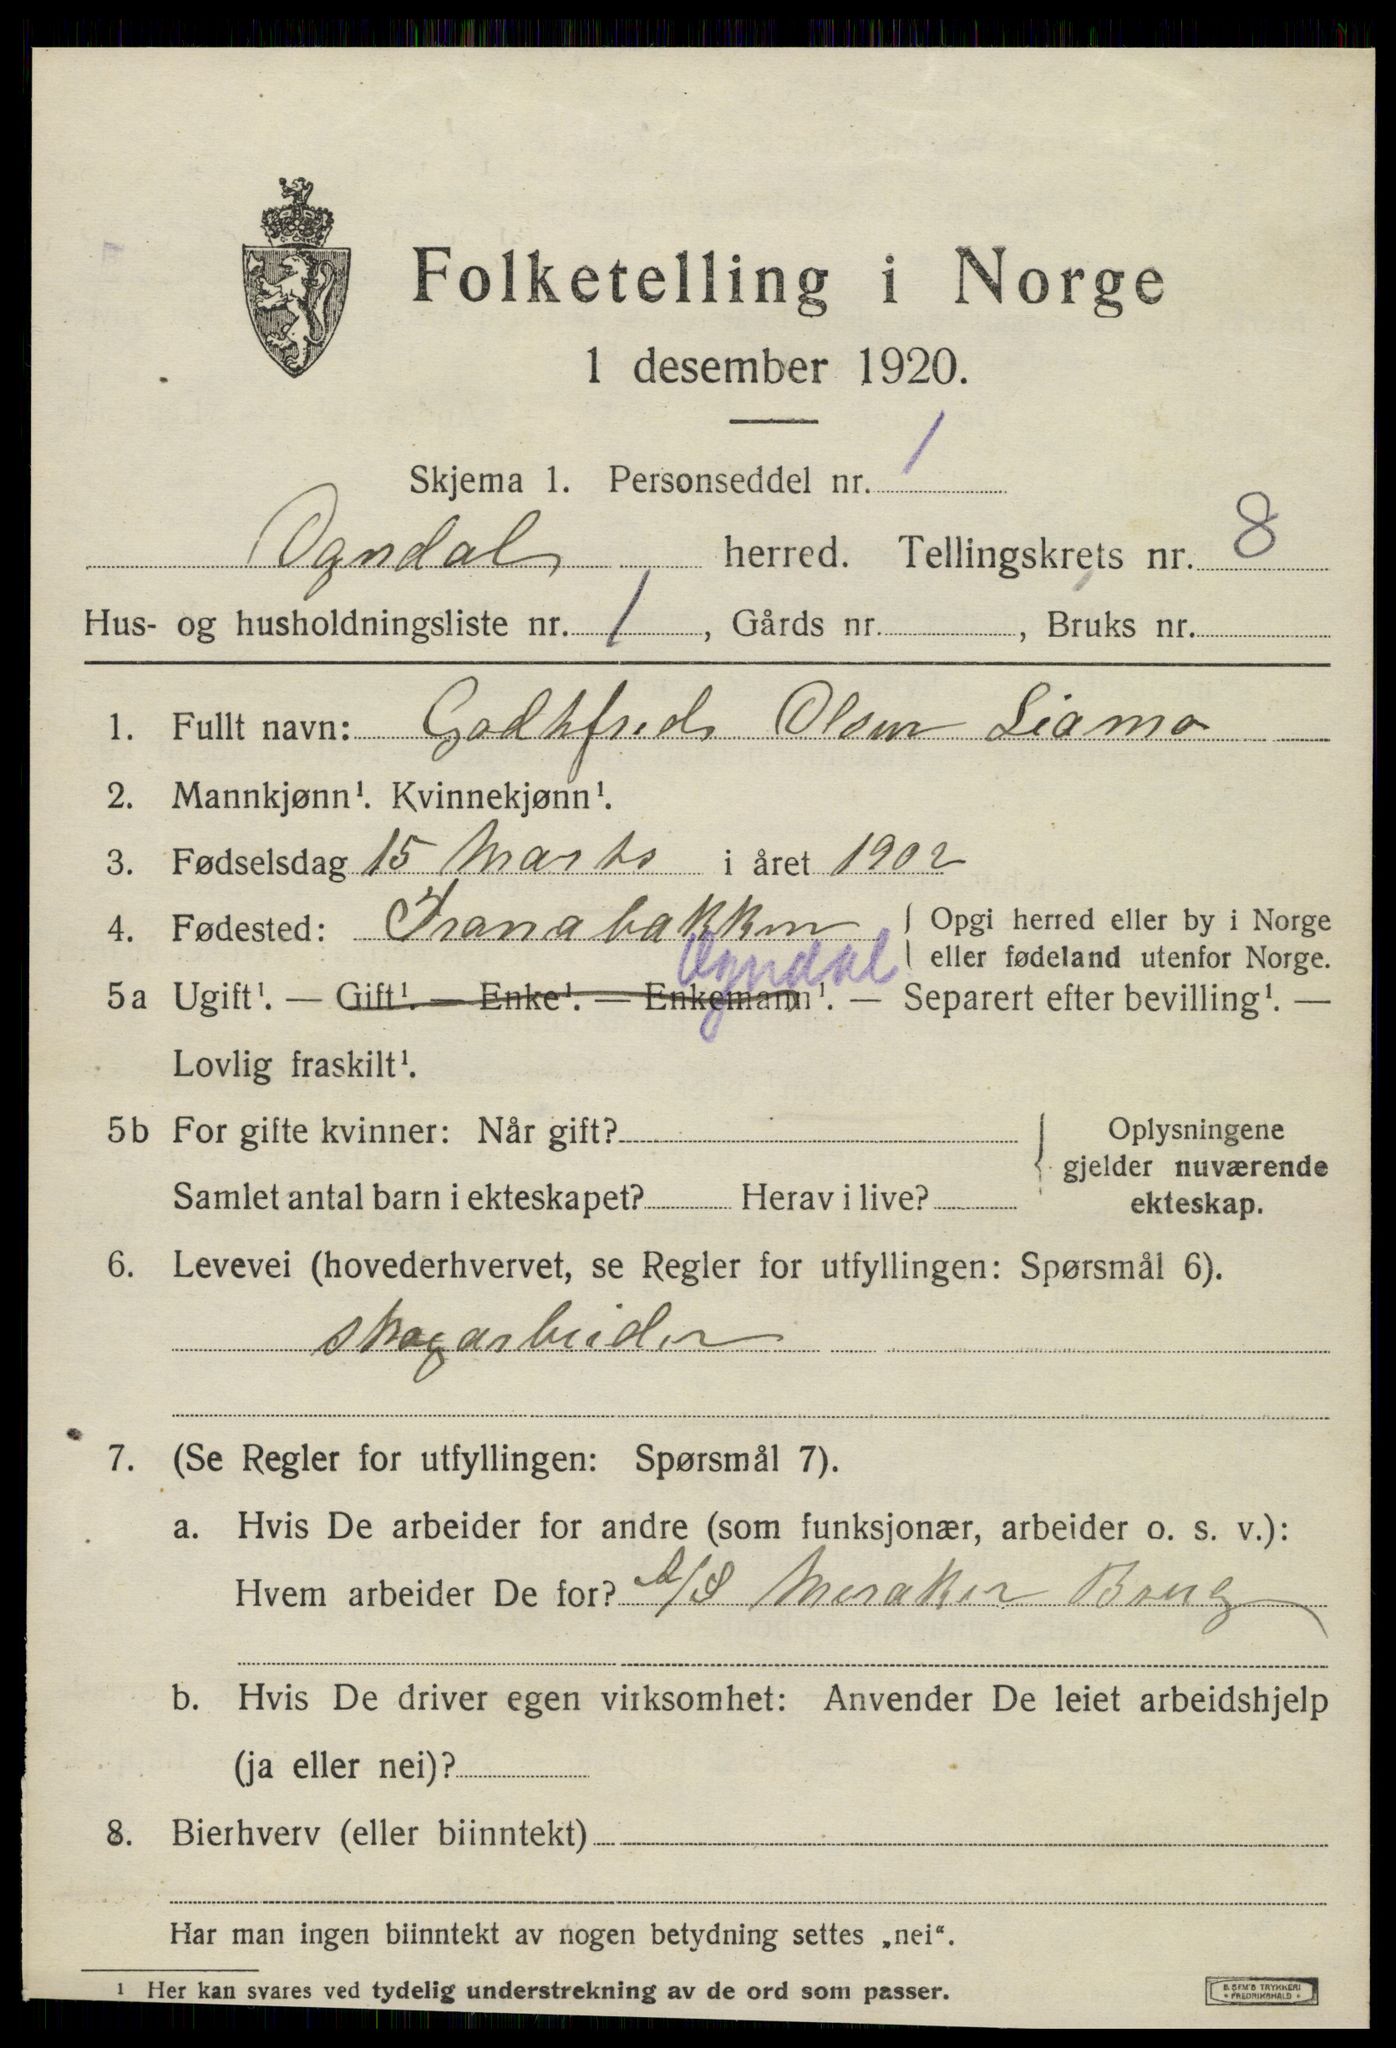 Folketelling i Norge
1 desember 1920.
Skjema 1. Personseddel nr. 1
Ogndal herred. Tellingskrets nr. 8
Hus- og husholdningsliste nr. 1, Gårds nr. , Bruks nr.
1. Fullt navn: Godtfred Olsen Liamo
2. Mannkjønn¹. Kvinnekjønn¹.
3. Fødselsdag 15 Marts i året 1902
4. Fødested: Tranabakken Opgi herred eller by i Norge
Ogndal eller fødeland utenfor Norge.
5a Ugift¹. — Gift¹. — Enke¹. — Enkemann¹. — Separert efter bevilling¹. —
Lovlig fraskilt¹.
5b For gifte kvinner: Når gift? Oplysningene
gjelder nuværende
Samlet antal barn i ekteskapet? Herav i live? ekteskap.
6. Levevei (hovederhvervet, se Regler for utfyllingen: Spørsmål 6).
skogarbeider
7. (Se Regler for utfyllingen: Spørsmål 7).
a. Hvis De arbeider for andre (som funksjonær, arbeider o. s. v.):
Hvem arbeider De for? A/S Meraker Brug
b. Hvis De driver egen virksomhet: Anvender De leiet arbeidshjelp
(ja eller nei)?
8. Bierhverv (eller biinntekt)
Har man ingen biinntekt av nogen betydning settes „nei“.
¹ Her kan svares ved tydelig understrekning av de ord som passer.
TRYKKERI
FREDRIKSHALD